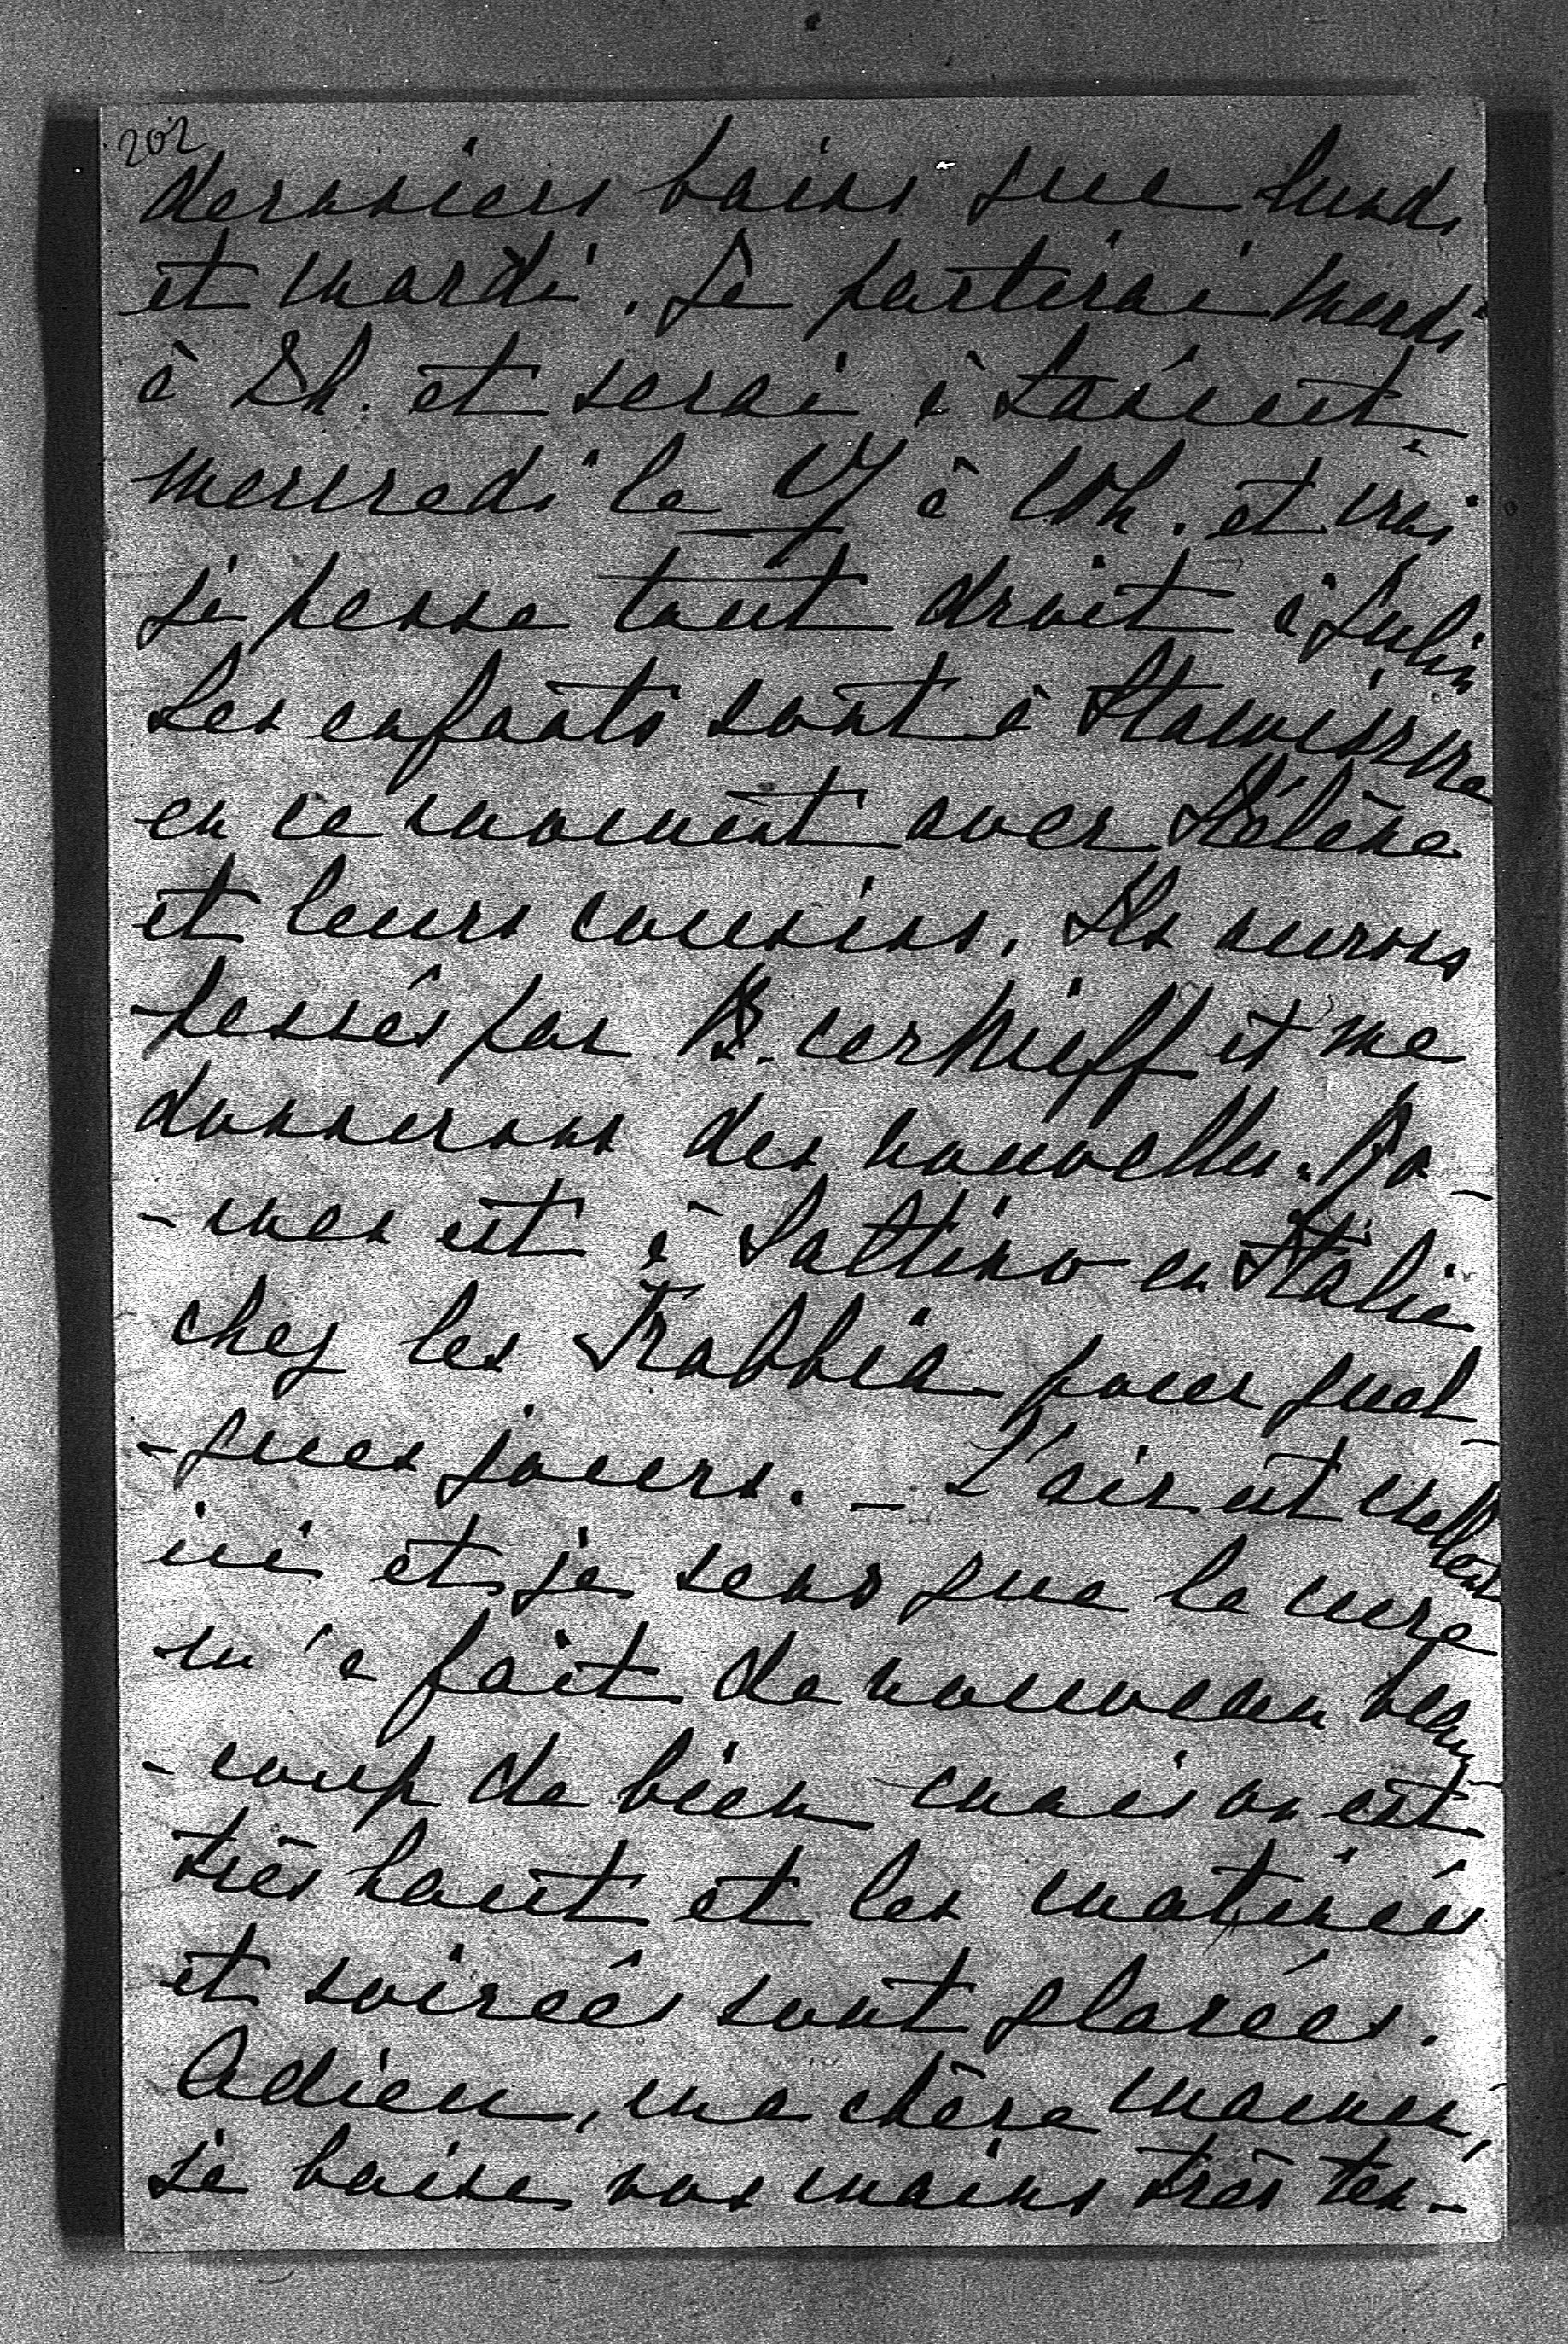 202
derniers bains que lundi
et mardi. Je partirai mardi
à 2h. et serai à Łańcut
mercredi le 17 à 10h. et irai
je pense tout droit à Julin
Les enfants sont à
en ce moment avec Hélène
et leurs cousins. Ils aurons
passés par et me
donnerons des nouvelles. Ro-
-man est à en Italie
chez les Trabbia pour quel
-ques jours. - L'air est excellent
ici et je sens que la cure
m'a fait de nouveau beau
-coup de bien mais on est
très haut et les matinées
et soirées sont glacées.
Adieu, ma chère maman,
je baise vos mains très ten-